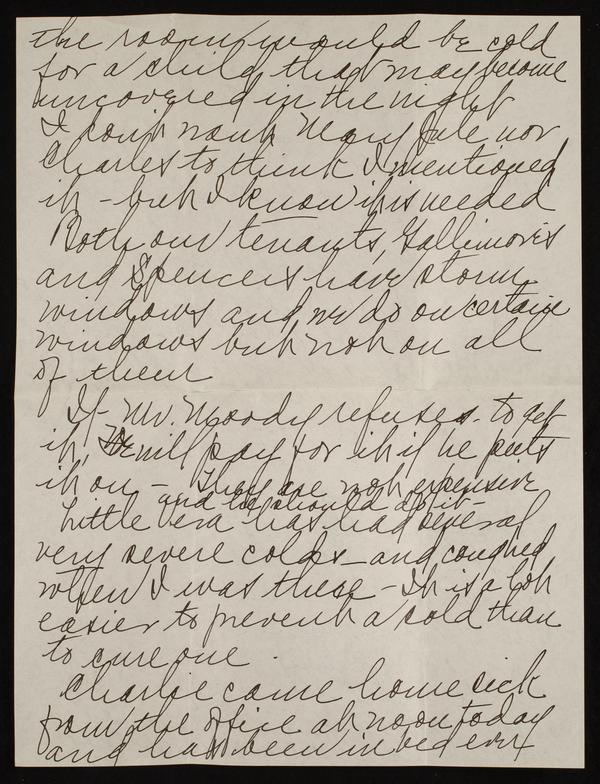 the room would be cold
for a child that may become
uncovered in the night
I don't want Mary Jule nor
Charles to think I mentioned
it - but I know it is needed
Both our tenants, Gallimores
and Spencers have storm
windows and we do on certain
windows but not on all
of them
If Mr. Moody refuses to get
it, will pay for it if he puts
it on - They are not expensive
and he should do it -
Little Vera has had several
very severe colds - and coughed
when I was there - It is a lot
easier to prevent a cold than
to cure one.
Charlie came home sick
from the office at noon today
and has been in bed ever